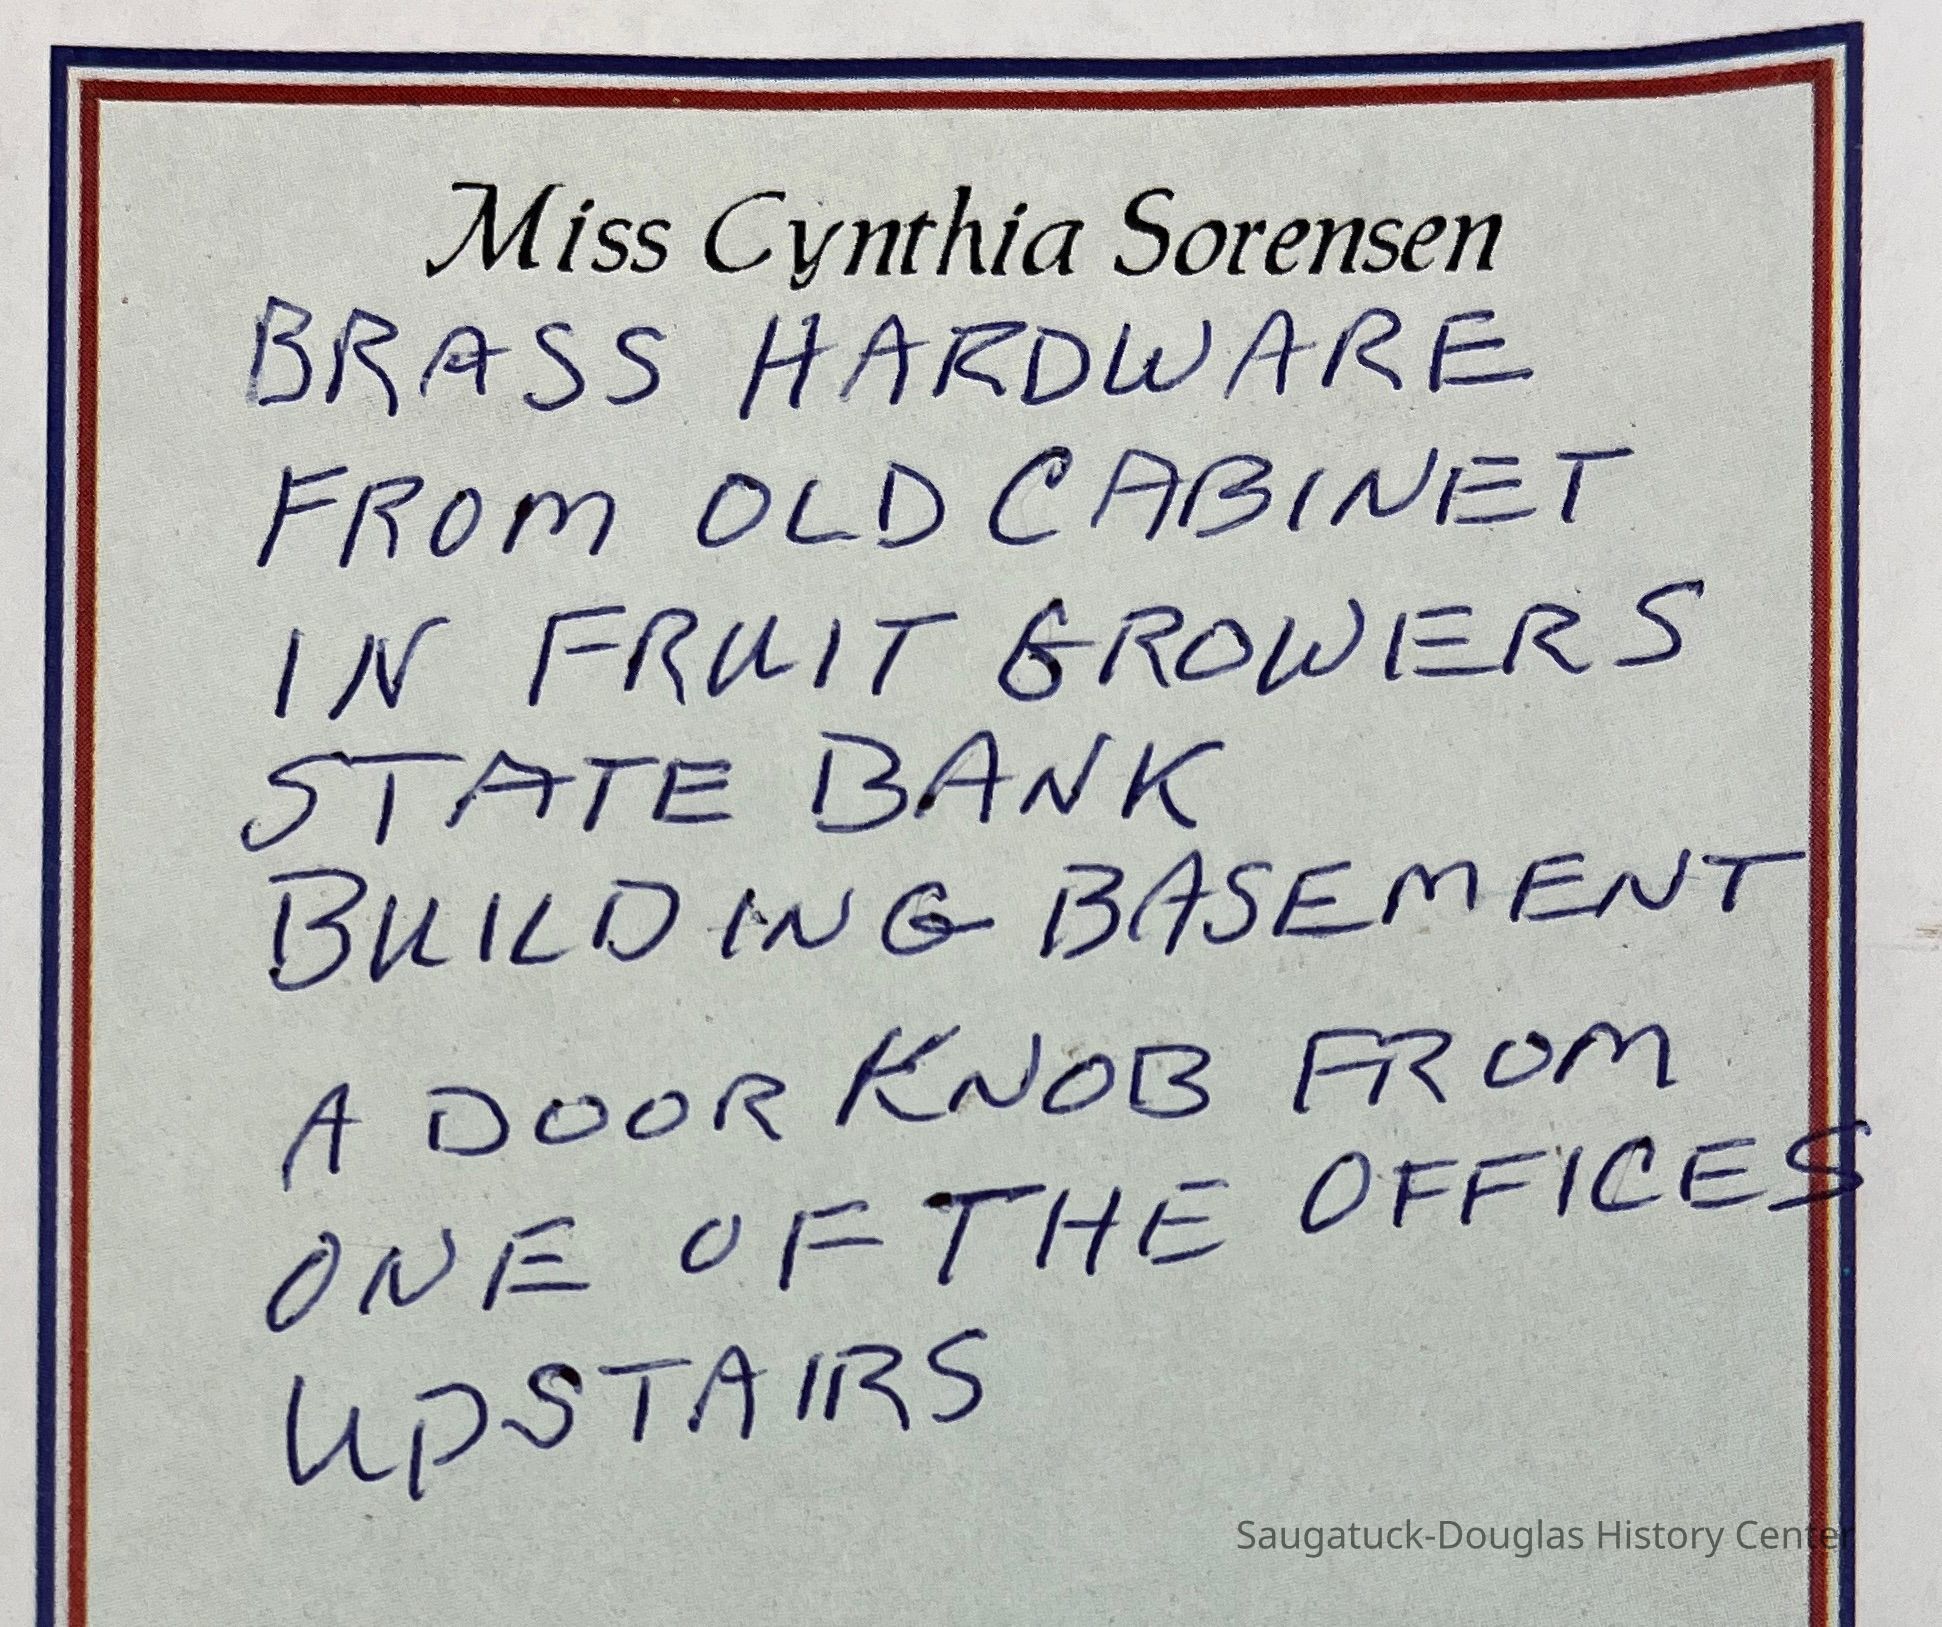 Miss Cynthia Sorensen
BRASS HARDWARE
FROM OLD CABINET
IN FRUIT GROWERS
STATE BANK
BUILDING BASEMENT
A DOOR KNOB FROM
ONE OF THE OFFICES
UPSTAIRS
Saugatuck-Douglas History Center